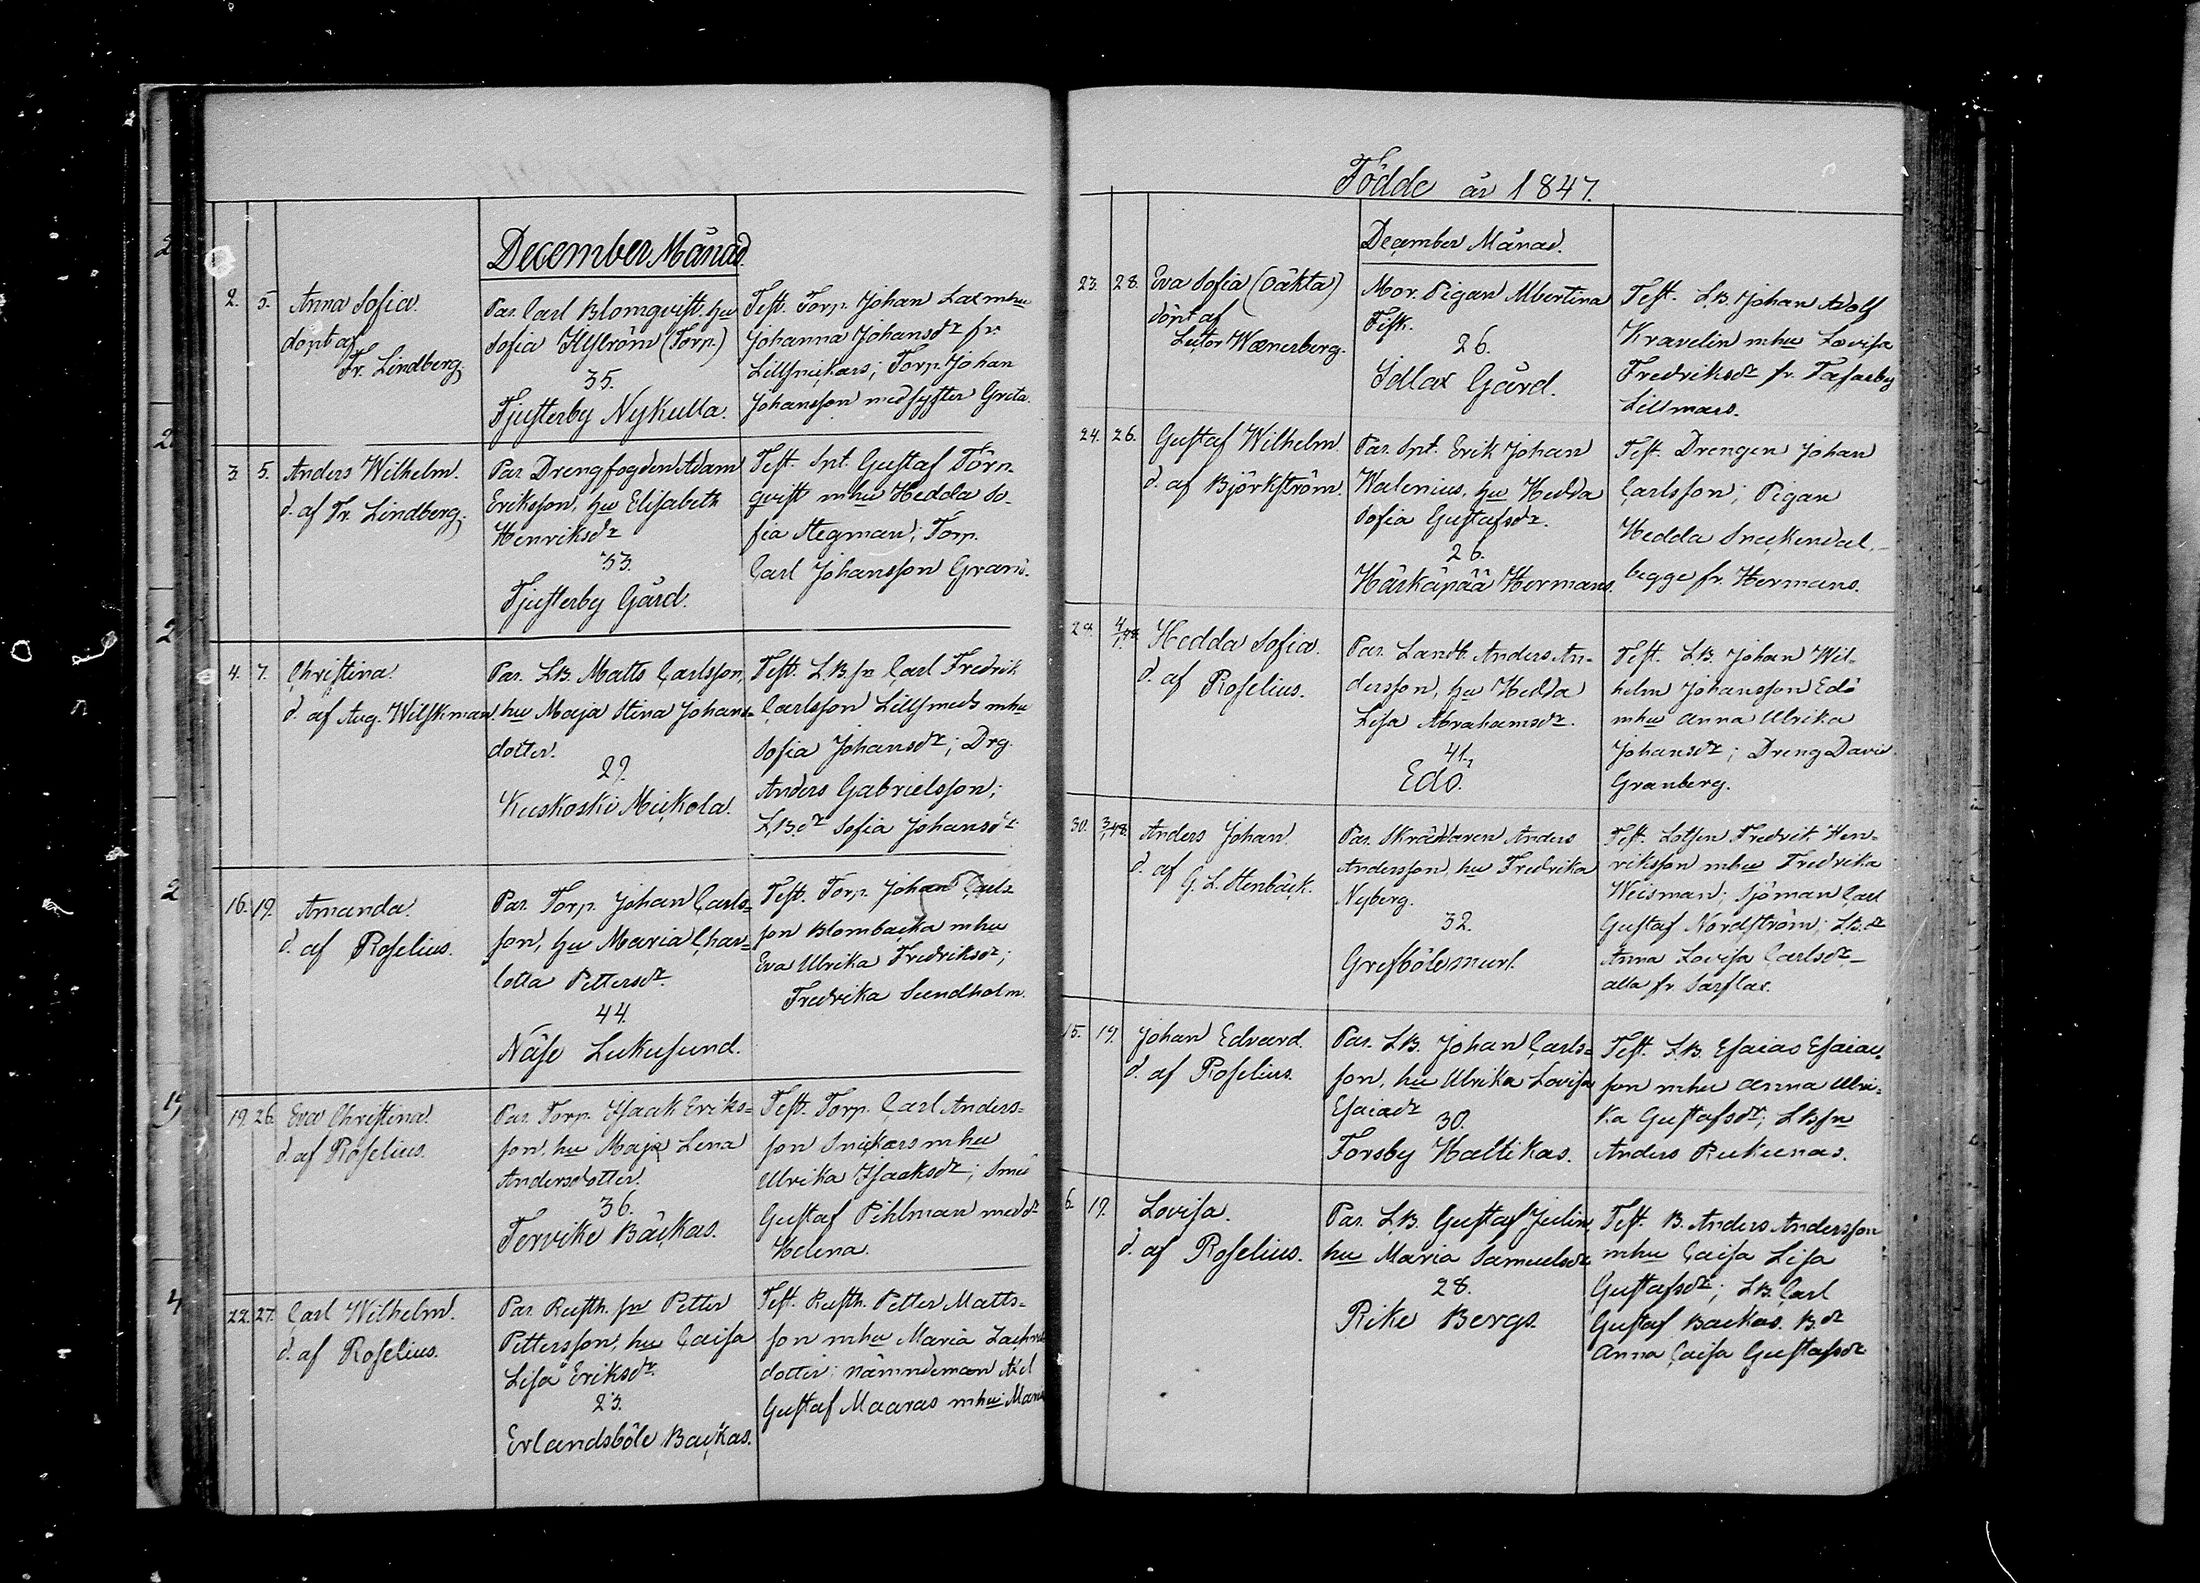 December Månad.
2. 5. Anna Sofia.
döpt af
Fr. Lindberg.
Par. Carl Blomqvist, hu
Sofia (Torp.)
35.
Tjusterby Nykulla.
Test. Torp. Johan Lax mhu
Johanna Johansdr fr.
Torp. Johan
Johansson med syster Greta.
3. 5. Anders Wilhelm.
d. af Fr. Lindberg.
Par. Drengfogden Adam
Eriksson, hu Elisabeth
Henriksdr
33.
Tjusterby Gård.
Test. Int. Gustaf Törn-
qvist mhu Hedda So-
fia Stegman; Torp.
Carl Johansson
4. 7. Christina.
d. af Aug. Wilskman.
Par. LB. Matts Carlsson,
hu Maja Stina Johans=
dotter.
29.
Kuskoski Mickola.
Test. LB.sn Carl Fredrik
Carlsson Lillsmeds mhu
Sofia Johansdr; Drg.
Anders Gabrielsson;
LB.dr Sofia Johansdr.
16. 19. Amanda.
d. af Roselius.
Par. Torp. Johan Carls=
son, hu Maria Char=
lotta Pettersdr.
44.
Näse Lukusund.
Test. Torp. Johan Carls-
son Blombacka mhu
Eva Ulrika Fredriksdr;
Fredrika Sundholm.
19. 26. Eva Christina.
d. af Roselius.
Par. Torp. Isaak Eriks=
son, hu Maja Lena
Andersdotter.
36.
Tervike Bäckas.
Test. Torp. Carl Anders-
son Snickars mhu
Ulrika Isaaksdr; Smed
Gustaf Pihlman med dr
Helena.
22. 27. Carl Wilhelm.
d. af Roselius.
Par. Rusth. sn Petter
Pettersson, hu Caisa
Lisa Eriksdr.
23.
Erlandsböle Backas.
Test. Rusth. Petter Matts=
son mhu Maria
dotter; nämndeman Axel
Gustaf Maaras mhu
Födde år 1847.
December Månad.
23. 28. Eva Sofia (Oäkta)
döpt af
Lector Wænerberg.
Mor. Pigan Albertina
Fisk.
26.
Idlax Gård.
Test. LB. Johan Adolf
Kravelin mhu Lovisa
Fredriksdr fr. Tasarby
Lillmars.
24. 26. Gustaf Wilhelm.
d. af Björkström.
Par. Int. Erik Johan
Walenius, hu Hedda
Sofia Gustafsdr.
26.
Härkäpää Hermans.
Test. Drengen Johan
Carlsson; Pigan
Hedda Sneckendal,
begge fr. Hermans.
4/1 48. Hedda Sofia.
d. af Roselius.
Par. Landb. Anders An-
dersson, hu Hedda
Lisa Abrahamsdr.
41.
Edö.
Test. LB. Johan Wil-
helm Johansson Edö
mhu Anna Ulrika
Johansdr; Dreng David
Granberg.
30. 3/1 48. Anders Johan.
d. af G. L. Stenbäck.
Par. Skräddaren Anders
Andersson, hu Fredrika
Nyberg.
32.
Grefböle
Test. Lotsen Fredrik Hen-
riksson mhu Fredrika
Weisman; Sjöman Carl
Gustaf Nordström; LB.dr
Anna Lovisa Carlsdr—
alla fr. Sarflax.
15. 19. Johan Edvard.
d. af Roselius.
Par. LB. Johan Carls=
son, hu Ulrika Lovisa
Esaiadr
30.
Forsby Haltikas.
Test. LB. Esaias Esaias-
son mhu Anna Ulri-
ka Gustafsdr; LBsn
Anders Rukunas.
6. 19. Lovisa.
d. af Roselius.
Par. LB. Gustaf Julin,
hu Maria Samuelsdr
28.
Rike Bergs.
Test. B. Anders Andersson
mhu Caisa Lisa
Gustafsdr; LB. Carl
Gustaf Backas. B.dr
Anna Caisa Gustafsdr